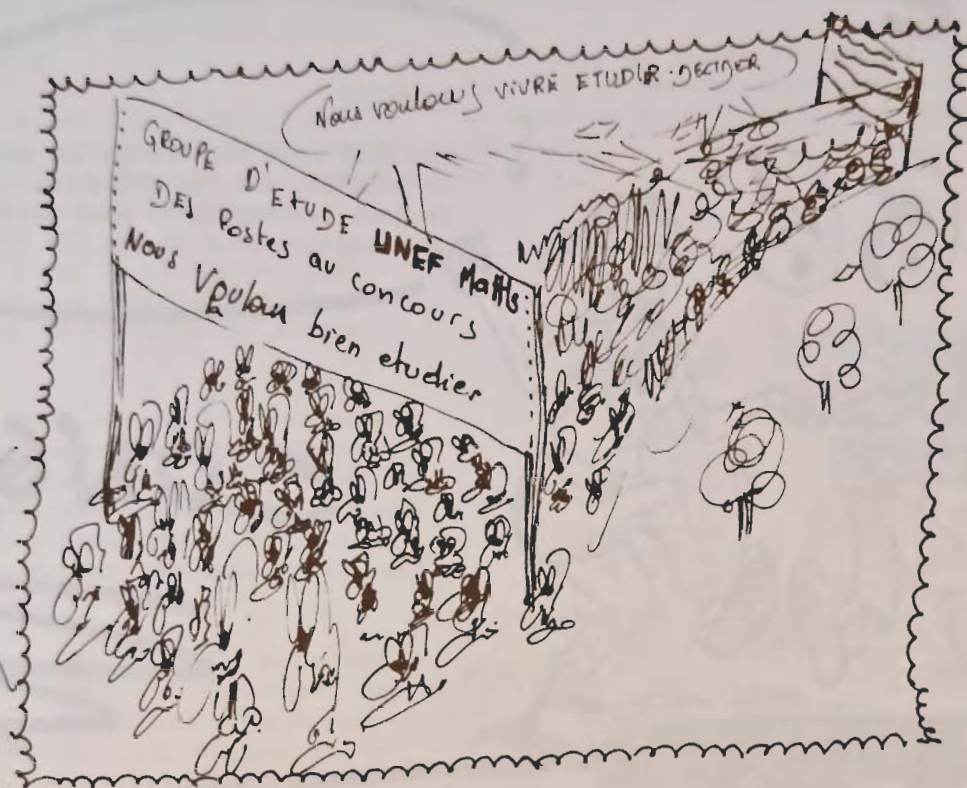 Nous voulons VIVRE ETUDIER DECIDER
GROUPE D'ETUDE UNEF Maths
DES Postes au concours
Nous Voulons bien etudier